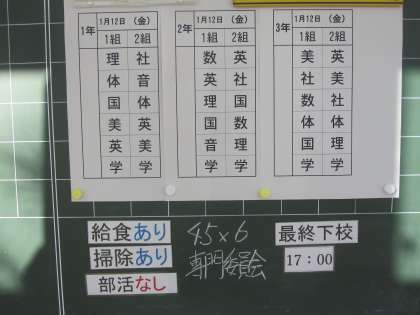 1年 1月12日 (金)
1組 2組
理 社
体 音
国 体
美 英
英 美
学 学
2年 1月12日 (金)
1組 2組
数 英
英 社
理 国
国 数
音 理
学 学
3年 1月12日 (金)
1組 2組
美 英
社 美
数 社
体 体
国 理
学 学
給食あり
掃除あり
部活なし
45×6
専門委員会
最終下校
17:00